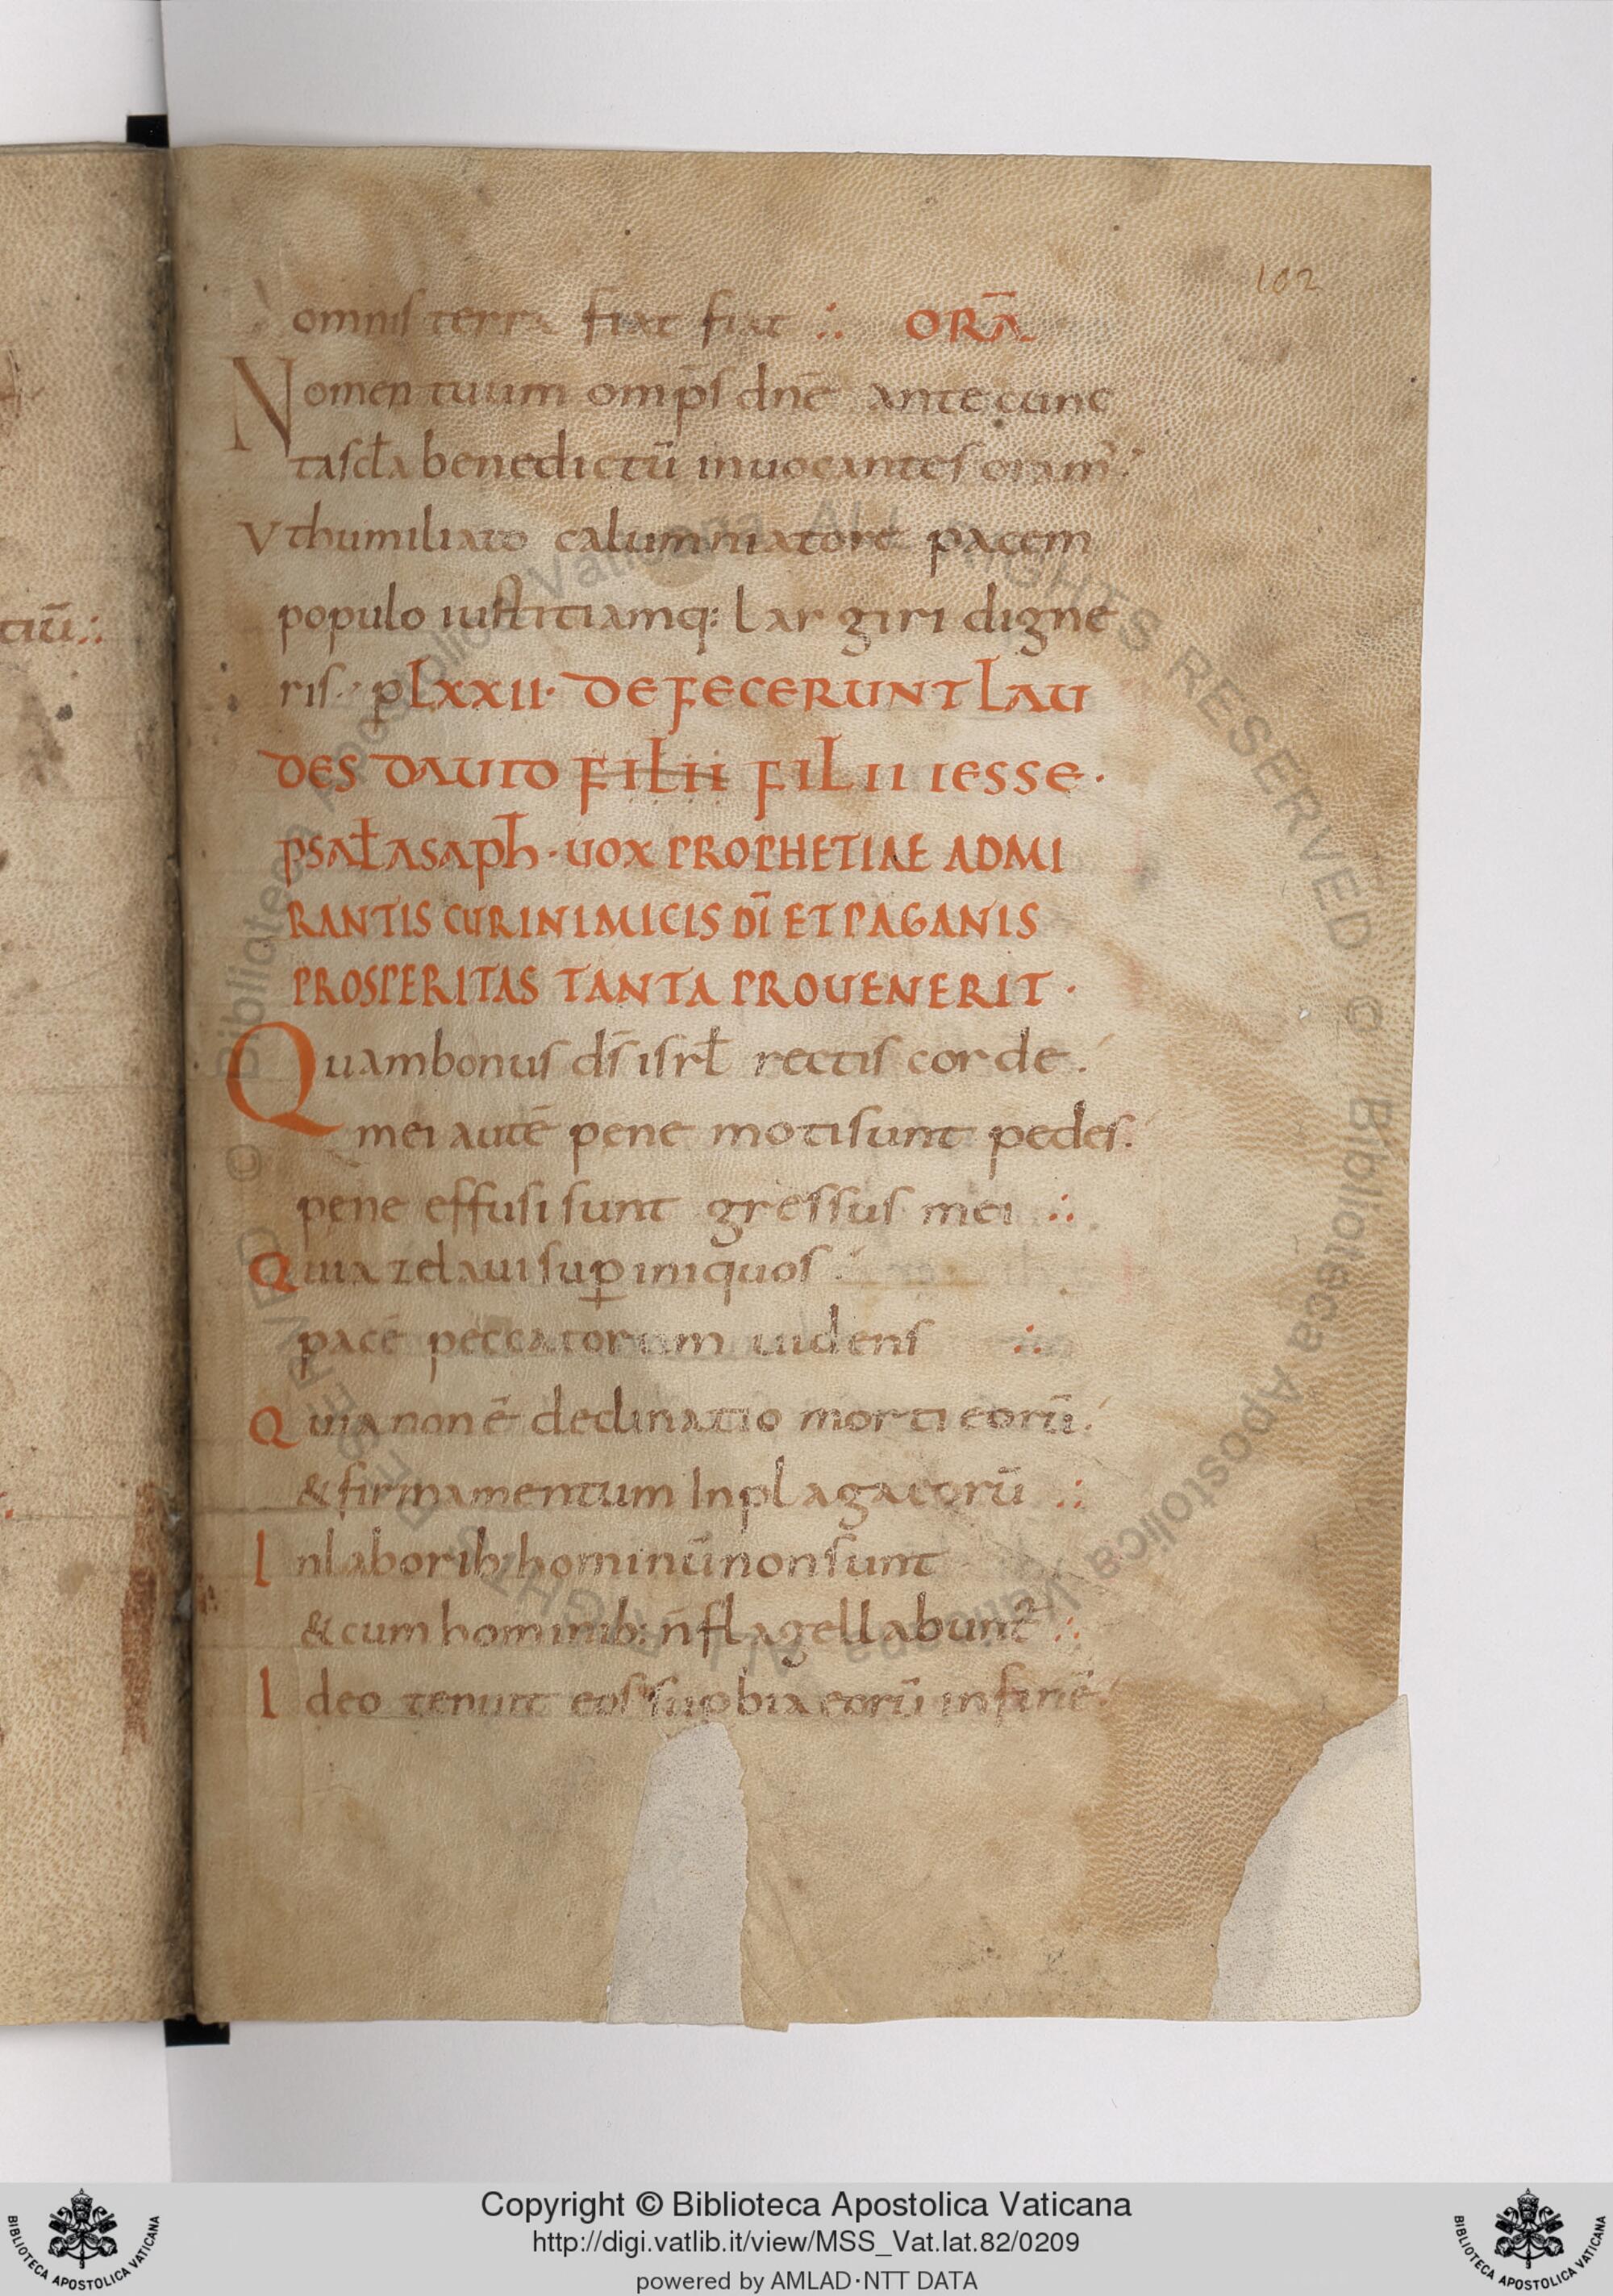 102
omnis terra fiat fiat ∴ ORA̅
Nomen tuum omp̅s dn̅e ante cunc
ta scl̅a benedictu̅ inuocantes oram᾽.
Vt humiliato calumniatore pacem
populo iustitiamq: largiri digne
ris. pLXXII. DEFECERUNT LAU
DES DAUID FILII FILII IESSE.
PSAL̅ ASAPH. UOX PROPHETIAE ADMI
RANTIS CUR INIMICIS DI̅ ET PAGANIS
PROSPERITAS TANTA PROUENERIT.
Quam bonus ds̅ isrl̅ rectis corde.
mei aute̅ pene moti sunt pedes.
pene effusi sunt gressus mei ∴
Quia zelaui sup̲ iniquos.
pace̅ peccatorum uidens ∴
Quia non e̅ declinatio morti eoru̅.
& firmamentum In plaga eoru̅ ∴
In laborib: hominu̅ non sunt
& cum hominib: n̅ flagellabunt᾽ ∴
Ideo tenuit eos sup̲bia eoru̅ in fine̅.
tiu̅ ∴
Copyright © Biblioteca Apostolica Vaticana
http://digi.vatlib.it/view/MSS_Vat.lat.82/0209
powered by AMLAD·NTT DATA
BIBLIOTECA APOSTOLICA VATICANA
BIBLIOTECA APOSTOLICA VATICANA
© Biblioteca Apostolica Vaticana ALL RIGHTS RESERVED © Biblioteca Apostolica Vaticana ALL RIGHTS RESERVED